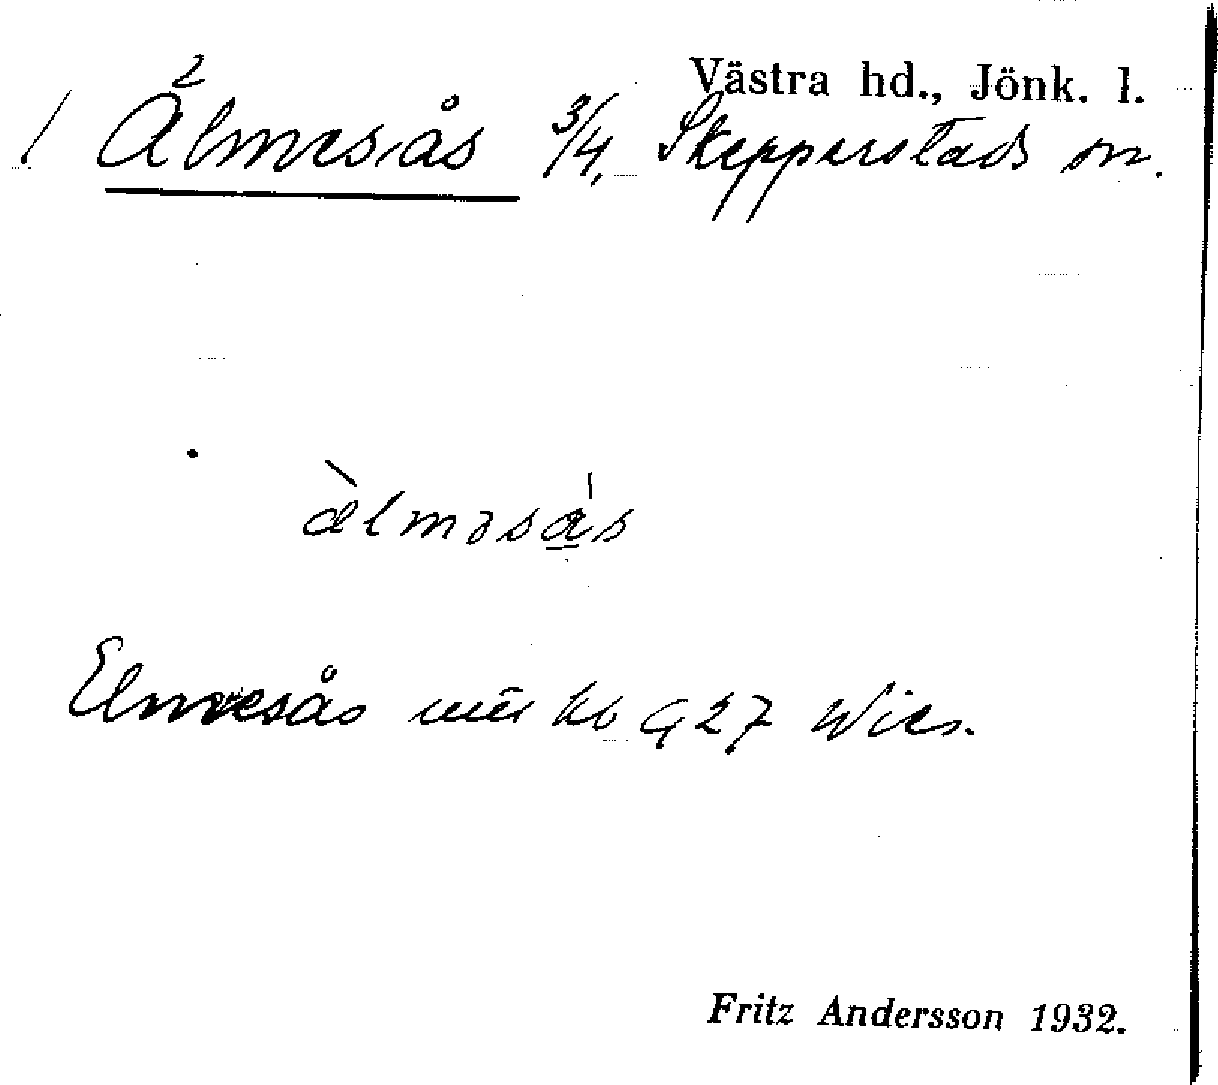 Västra hd., Jönk. l.
Älmesås 3/4, Skepperstads sn.
ælməsås
Elmesås kb 27 Wies.
Fritz Andersson 1932.